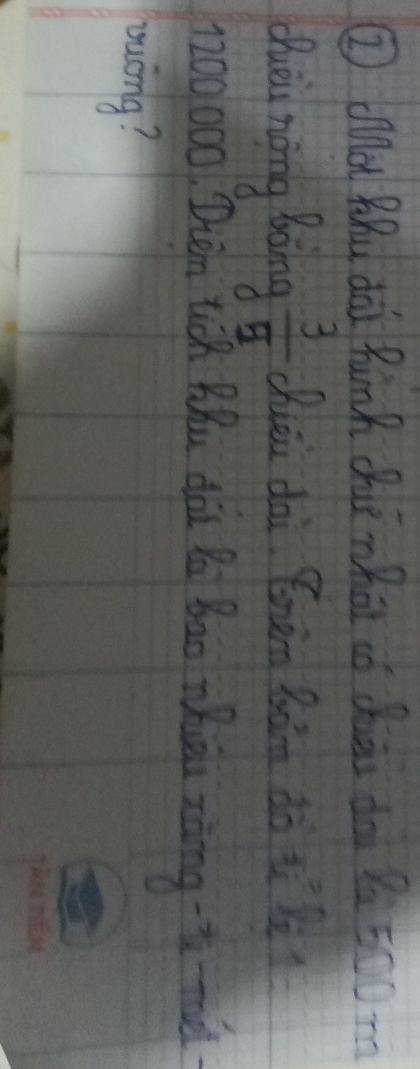 ② Một khu đất hình chữ nhật có chiều dài là 500 m
chiều rộng bằng 3/5 chiều dài. Trên bản đồ tỉ lệ 1
1200 000. Diện tích khu đất là bao nhiêu xăng-ti-mét-
vuông?